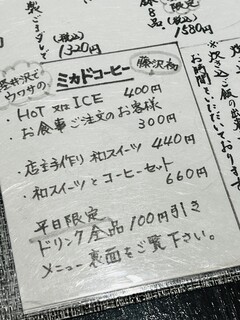 (税込)
1320円
限定
(税込)
1580円
軽井沢で
ウワサの
ミカドコーヒー
藤沢初
・HOT 又は ICE 400円
・お食事ご注文のお客様
300円
・店主手作り 和スイーツ 440円
・和スイーツとコーヒーセット
660円
平日限定
ドリンク全品100円引き
メニュー裏面をご覧下さい。
お時間をいただいております